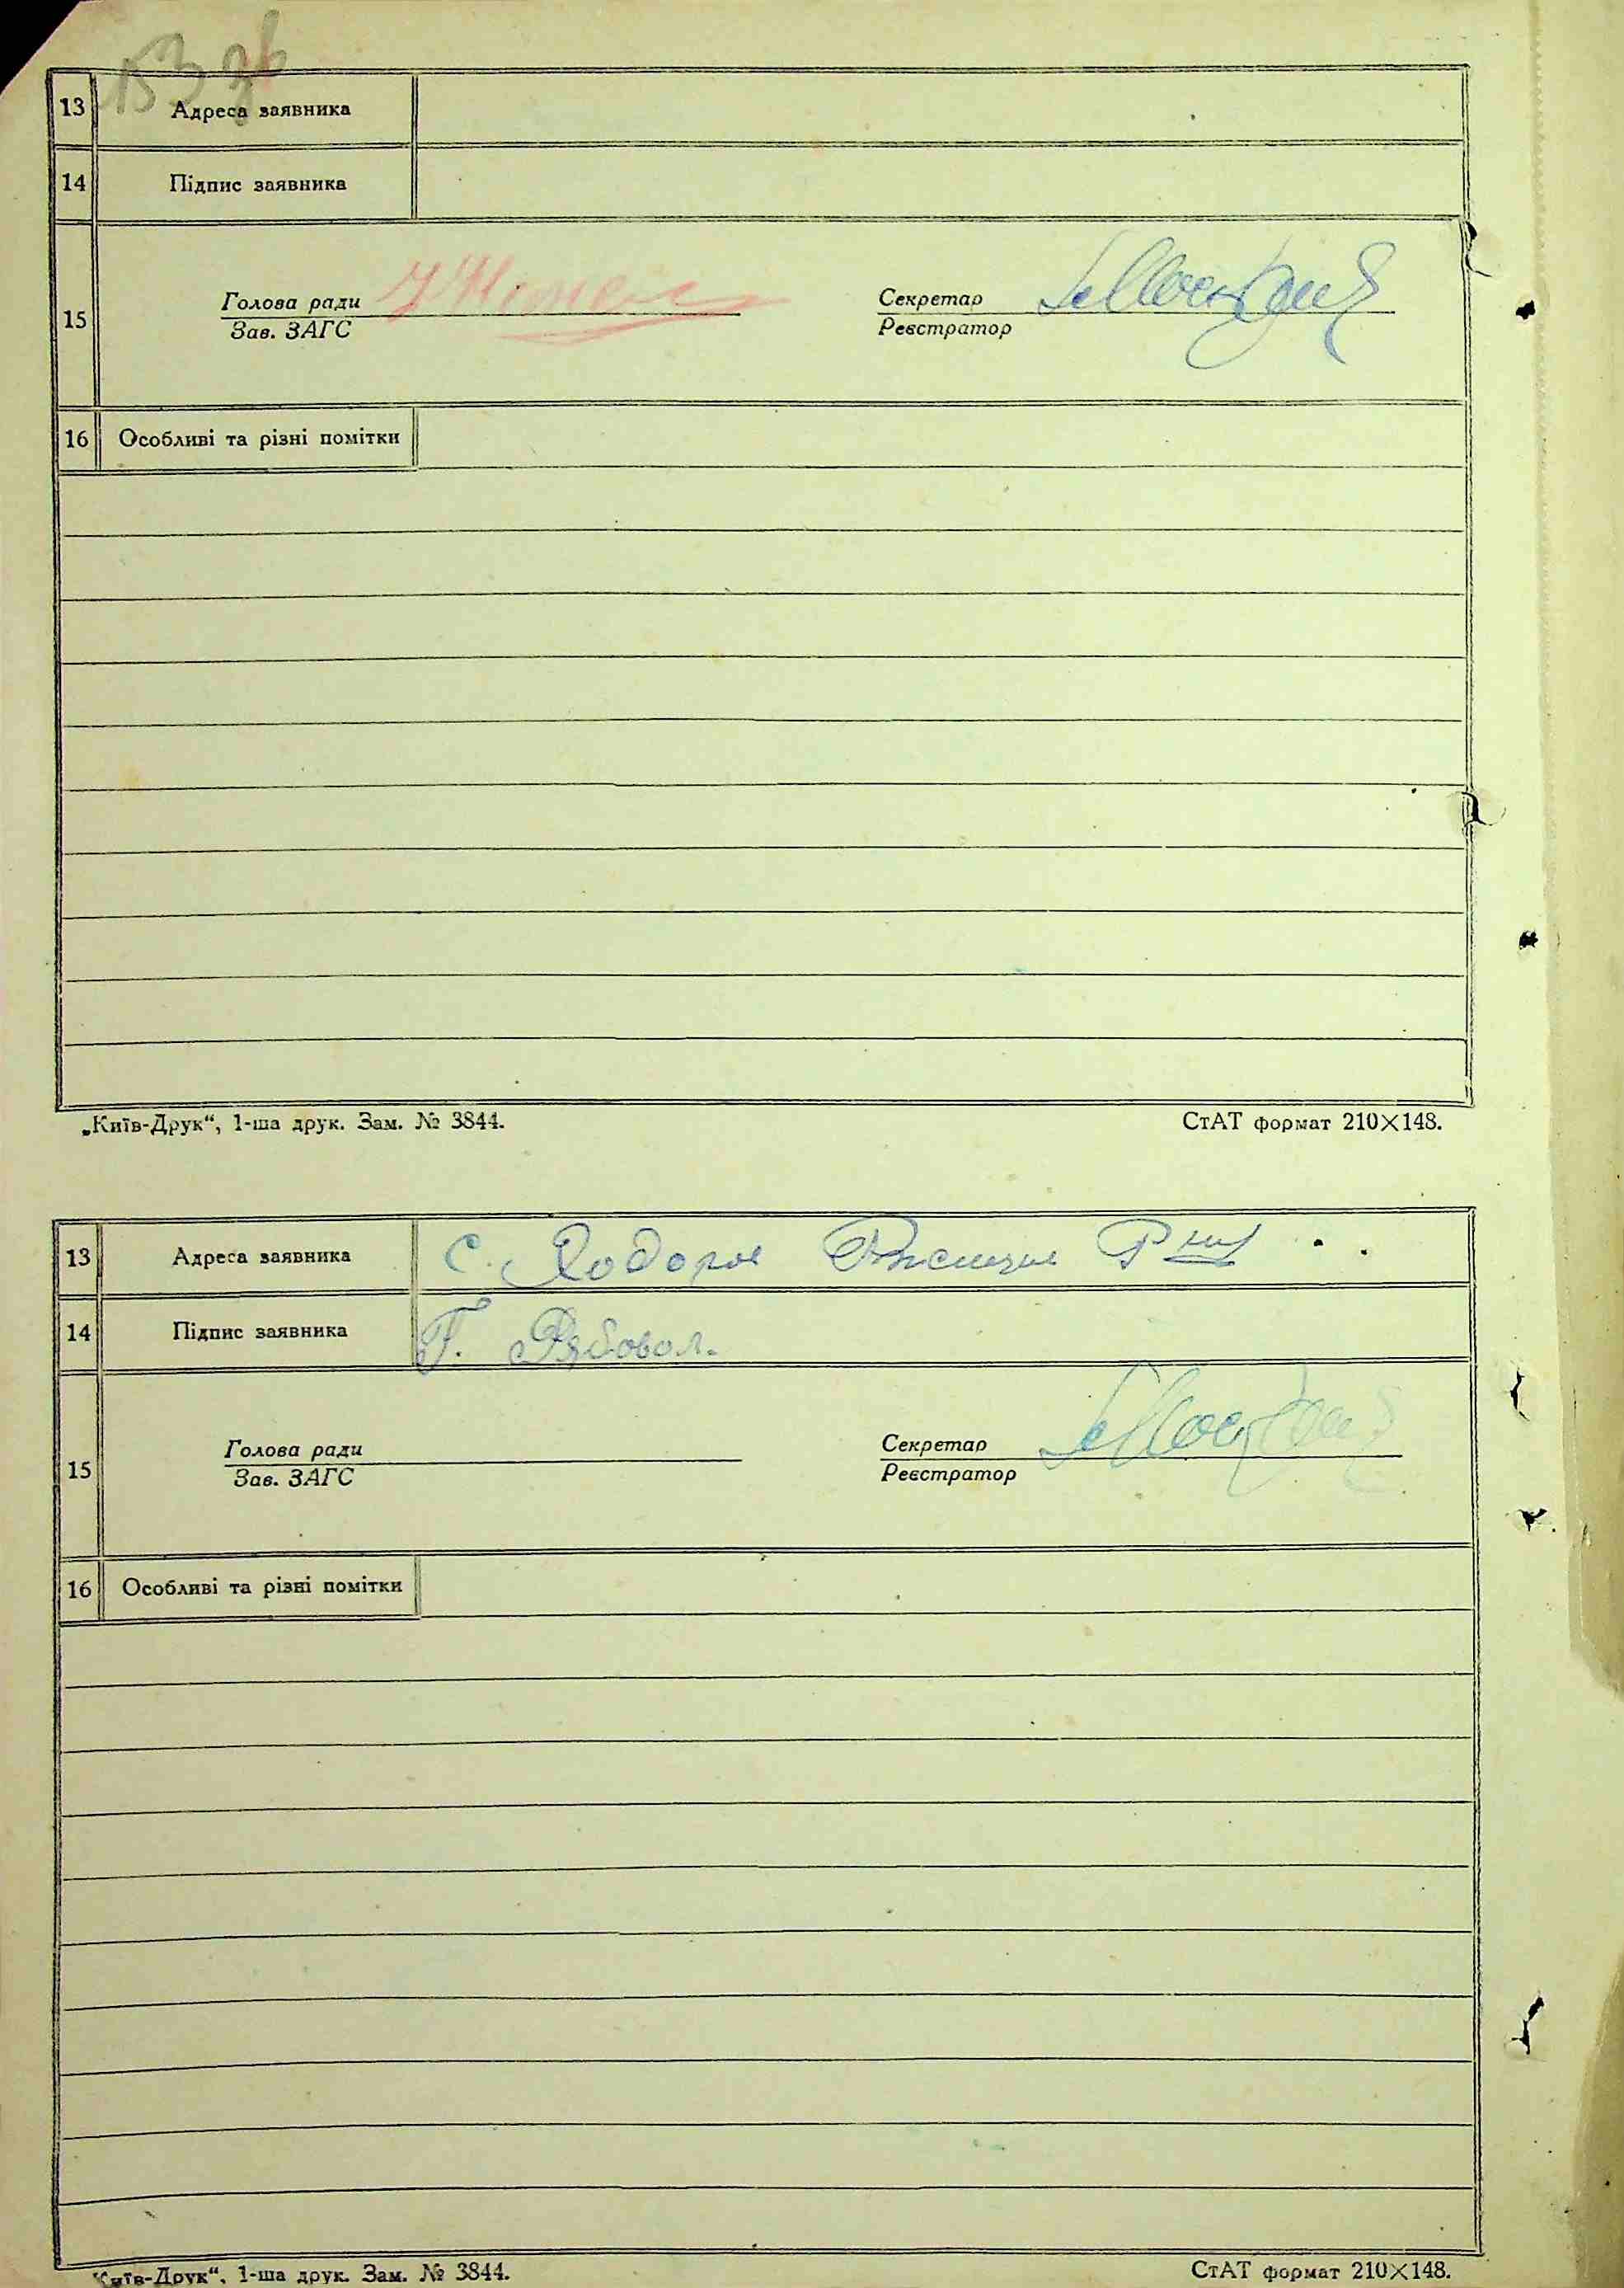 153 зв
13 Адреса заявника
14 Підпис заявника
15 Голова ради Секретар
Зав. ЗАГС Реєстратор
16 Особливі та різні помітки
„Київ-Друк“, 1-ша друк. Зам. № 3844. СтАТ формат 210×148.
13 Адреса заявника с. Ходорів
14 Підпис заявника Г. Рябовол.
15 Голова ради Секретар
Зав. ЗАГС Реєстратор
16 Особливі та різні помітки
Київ-Друк“, 1-ша друк. Зам. № 3844. СтАТ формат 210×148.